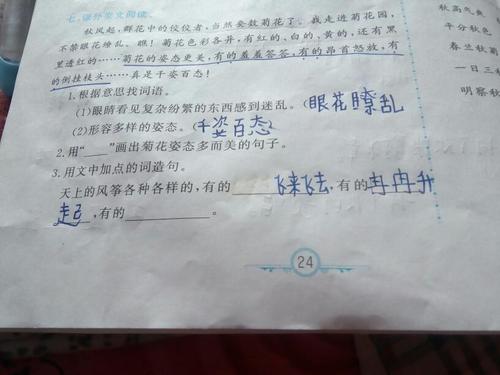 七、课外美文阅读。
秋风起,群花中的佼佼者,当然要数菊花了。我走进菊花园,
不禁眼花缭乱。瞧!菊花色彩各异,有红的、白的、黄的,还有黑
里透红的……菊花的姿态更美,有的羞羞答答,有的昂首怒放,有
的倒挂枝头……真是千姿百态!
1.根据意思找词语。
(1)眼睛看见复杂纷繁的东西感到迷乱。(眼花瞭乱
(2)形容多样的姿态。(千姿百态)
2.用“___”画出菊花姿态多而美的句子。
3.用文中加点的词造句。
天上的风筝各种各样的,有的____飞来飞去,有的冉冉升
起,有的________。
24
秋高气爽
平分秋色
春兰秋菊
一日三
明察秋